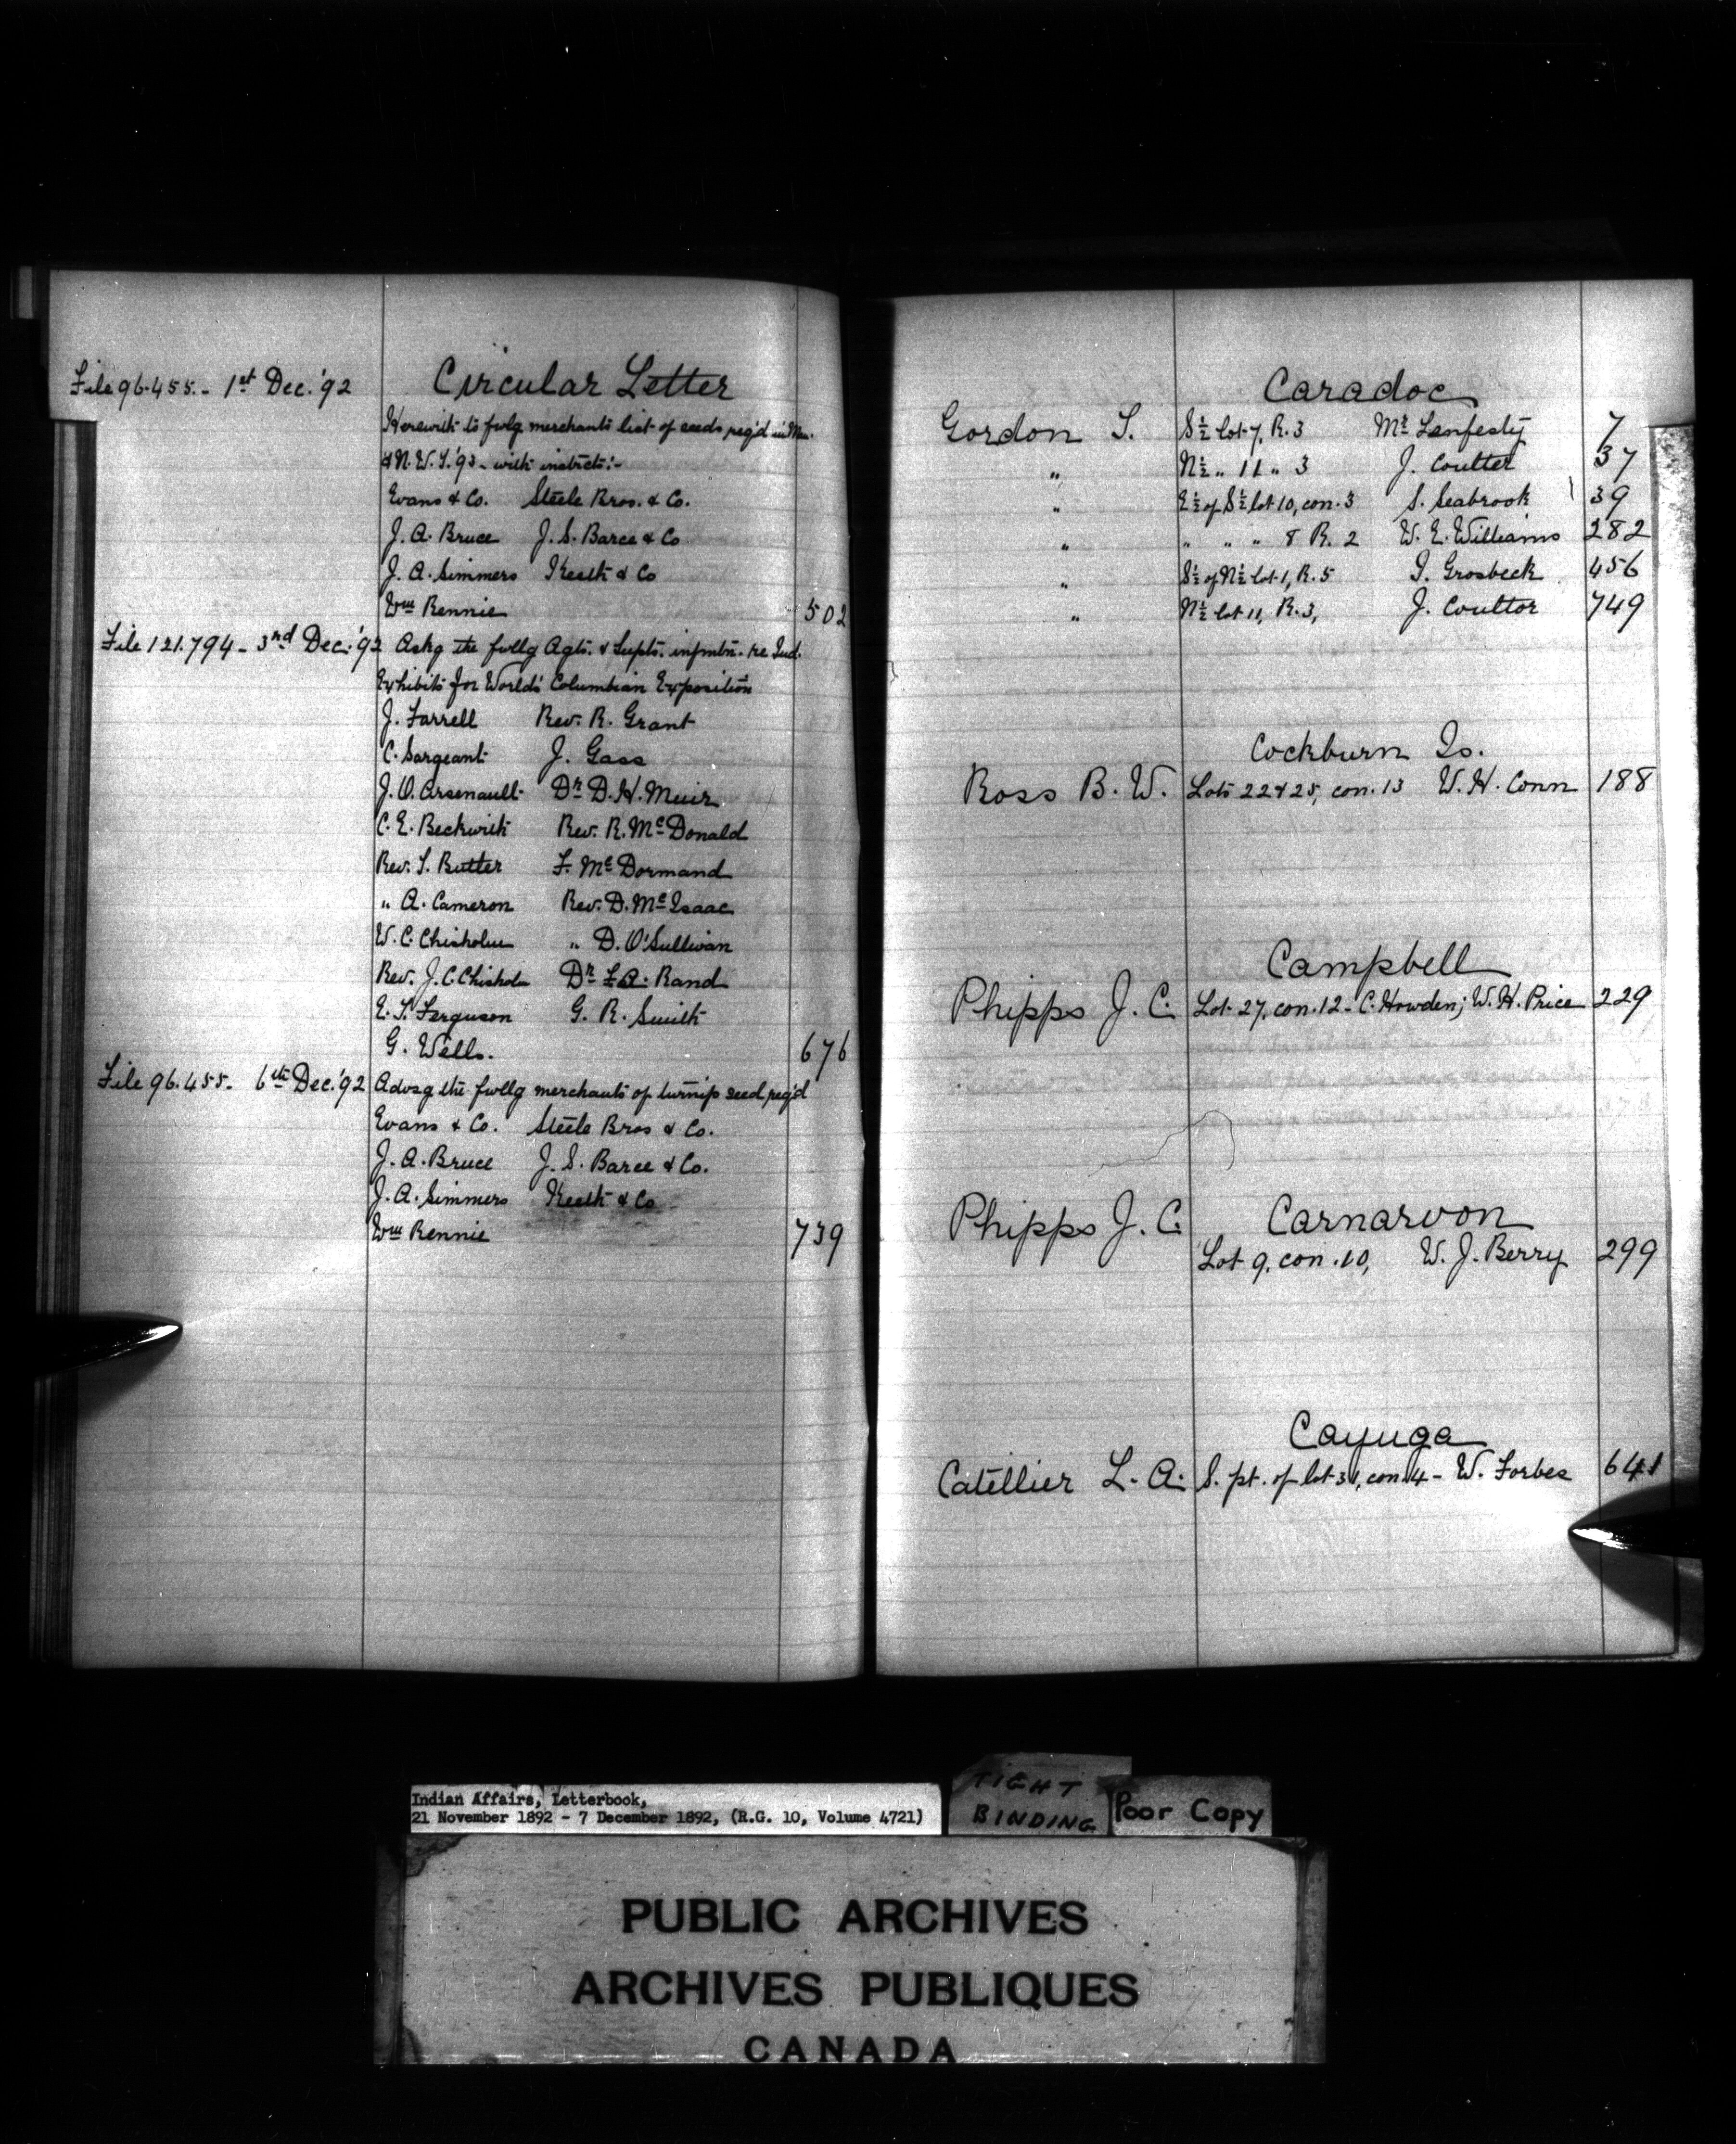 Circular Letter
File 96.455. - 1st Dec. '92
Herewith to fwlg merchants list of seeds reqd in Man.
& N.W.T. '93 - with instrcts:-
Evans & Co. Steele Bros. & Co.
J. A. Bruce J. S. Barce & Co
J. A. Simmers Keith & Co
Wm Rennie 502
File 121.794 - 3rd Dec. '92 Askg the fwllg Agts. & Supts. infmtn. re Ind.
Exhibits for World's Columbian Exposition
J. Farrell Rev. R. Grant
C. Sargeant J. Gass
J. O. Arsenault Dr D. H. Muir
C. E. Beckwith Rev. R. McDonald
Rev. T. Butler F. McDormand
" A. Cameron Rev. D. McIsaac
W. C. Chisholm " D. O'Sullivan
Rev. J. C. Chisholm Dr F. A. Rand
E. T. Ferguson G. R. Smith
G. Wells. 676
File 96.455 - 6th Dec. '92 Advsg the fwllg merchants of turnip seed reqd
Evans & Co. Steele Bros & Co.
J. A. Bruce J. S. Barce & Co.
J. A. Simmers Keith & Co
Wm Rennie 739
Caradoc
Gordon T. S½ lot 7, R. 3 Mr Lenfesty 7
" N½ " 11 " 3 J. Coulter 37
" E½ of S½ lot 10, con. 3 S. Seabrook 39
" " " " 8 R. 2 W. E. Williams 282
" S½ of N½ lot 1, R. 5 T. Grosbeck 456
" N½ lot 11, R. 3, J. Coultor 749
Cockburn Is.
Ross B. W. Lots 22 & 25, con. 13 W. H. Conn 188
Campbell
Phipps J. C. Lot 27, con. 12 - C. Howden; W. H. Price 229
Phipps J. C. Carnarvon
Lot 9, con. 10, W. J. Berry 299
Cayuga
Catellier L. A. S. pt. of lot 31, con. 4 - W. Forbes 641
Indian Affairs, Letterbook,
21 November 1892 - 7 December 1892, (R.G. 10, Volume 4721)
TIGHT
BINDING
Poor Copy
PUBLIC ARCHIVES
ARCHIVES PUBLIQUES
CANADA